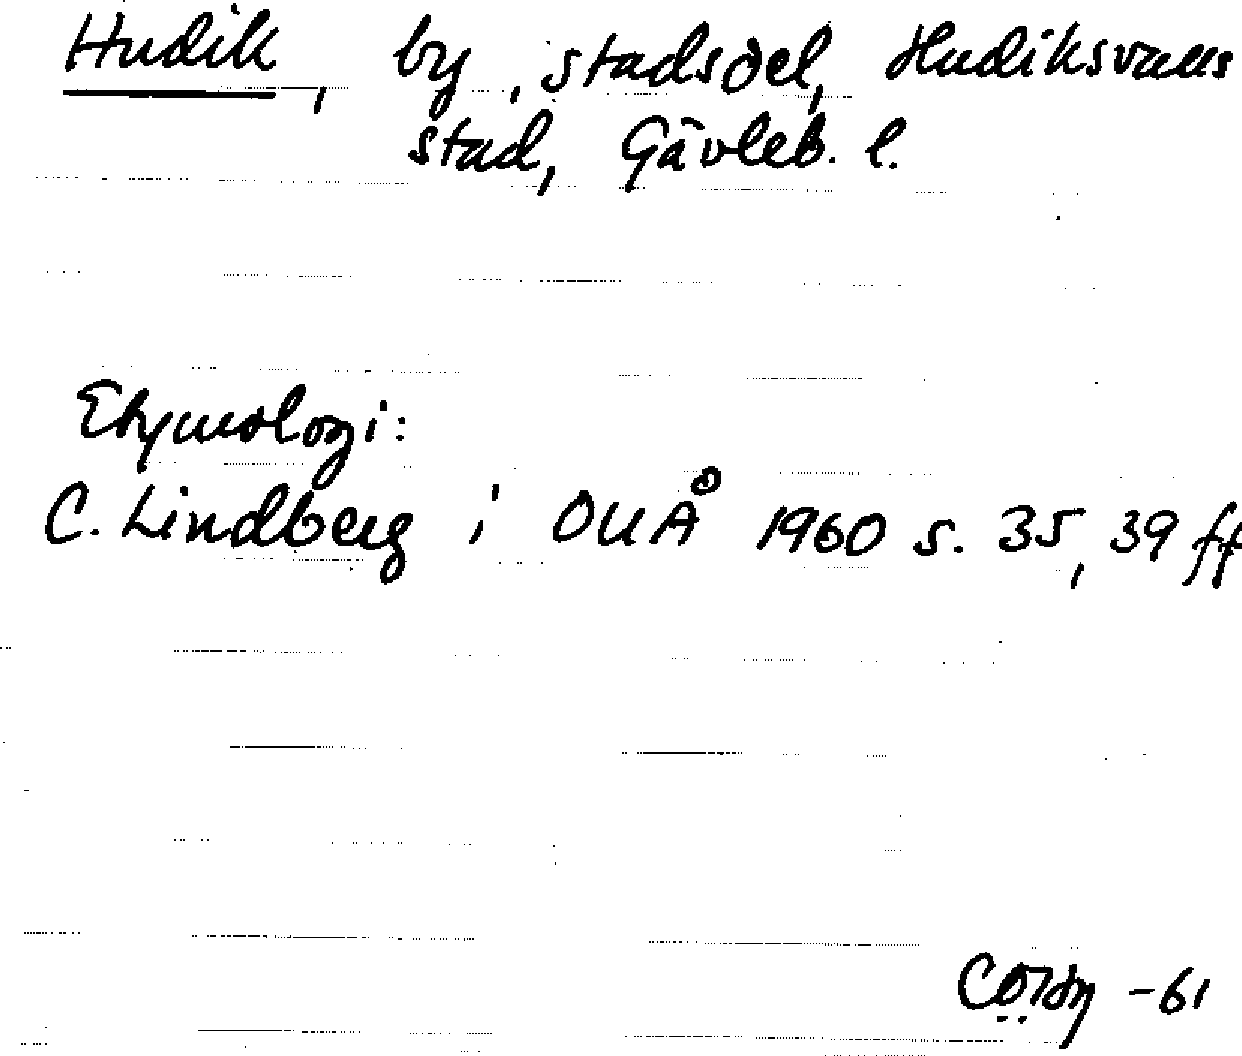 Hudik, by, stadsdel, Hudiksvalls
stad, Gävleb. l.
Etymologi:
C. Lindberg i OUÅ 1960 s. 35, 39 ff
-61